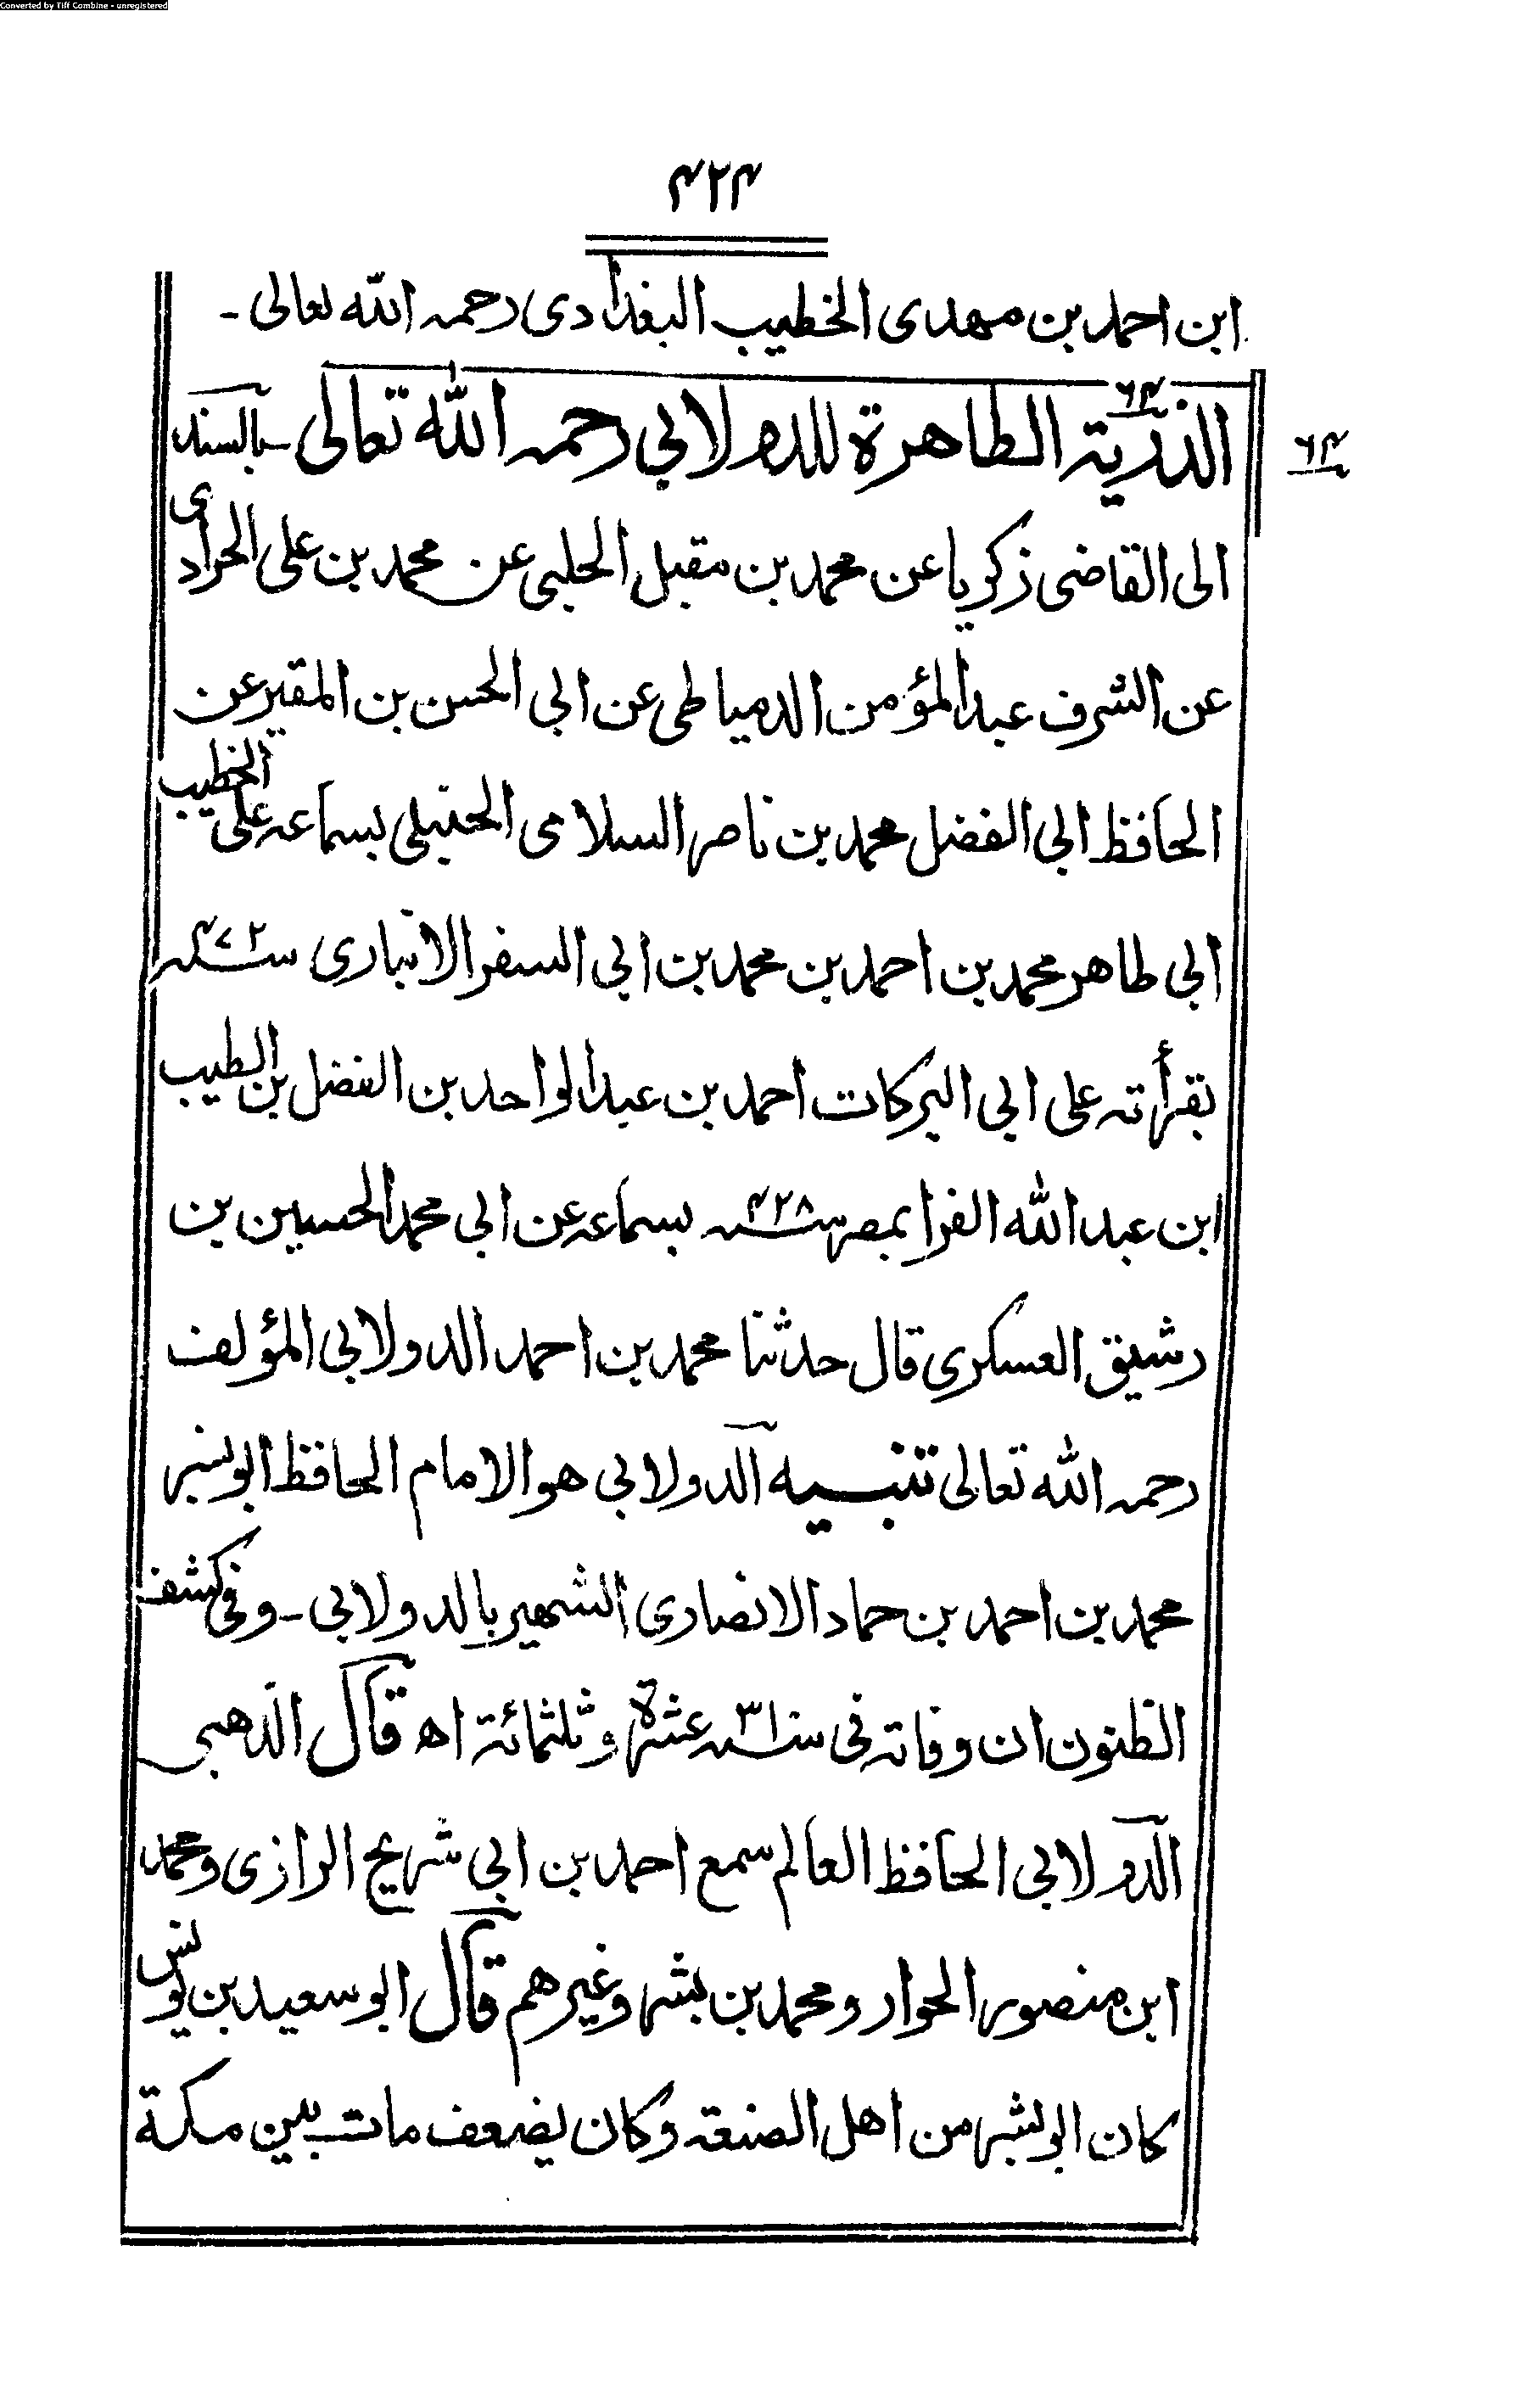 Converted by Tiff Combine - unregistered
۴۲۴
ابن احمد بن مهدى الخطيب البغدادى رحمہ الله تعالى ۔
۶۴
الذرّيۃ الطاهرة للدولابي رحمہ الله تعالى ۔ بالسند
۶۴
الى القاضى زكريا عن محمد بن مقبل الحلبى عن محمد بن على الحراوى
عن الشرف عبد المؤمن الدمياطى عن ابى الحسن بن المقير عن
الحافظ ابى الفضل محمد بن ناصر السلامى الحنبلى بسماعہ على الخطيب
ابى طاهر محمد بن احمد بن محمد بن ابى السفر الانبارى سنہ ۴۷۲
بقرأتہ على ابى البركات احمد بن عبد الواحد بن الفضل بن الطيب
ابن عبد الله الفرا بمصر سنہ ۴۲۸ بسماعہ عن ابى محمد الحسين بن
رشيق العسكرى قال حدثنا محمد بن احمد الدولابى المؤلف
رحمہ الله تعالى تنبيه الدولابى هو الامام الحافظ ابو بشر
محمد بن احمد بن حماد الانصارى الشهير بالدولابى ۔ وفى كشف
الظنون ان وفاتہ فى سنہ ۳۱۰ عشرة وثلثمائۃ اھ قال الذهبى
الدولابى الحافظ العالم سمع احمد بن ابى شريح الرازى ومحمد
ابن منصور الجوار ومحمد بن بشر وغيرهم قال ابو سعيد بن يونس
كان ابو بشر من اهل الصنعۃ وكان يضعف مات بين مكة